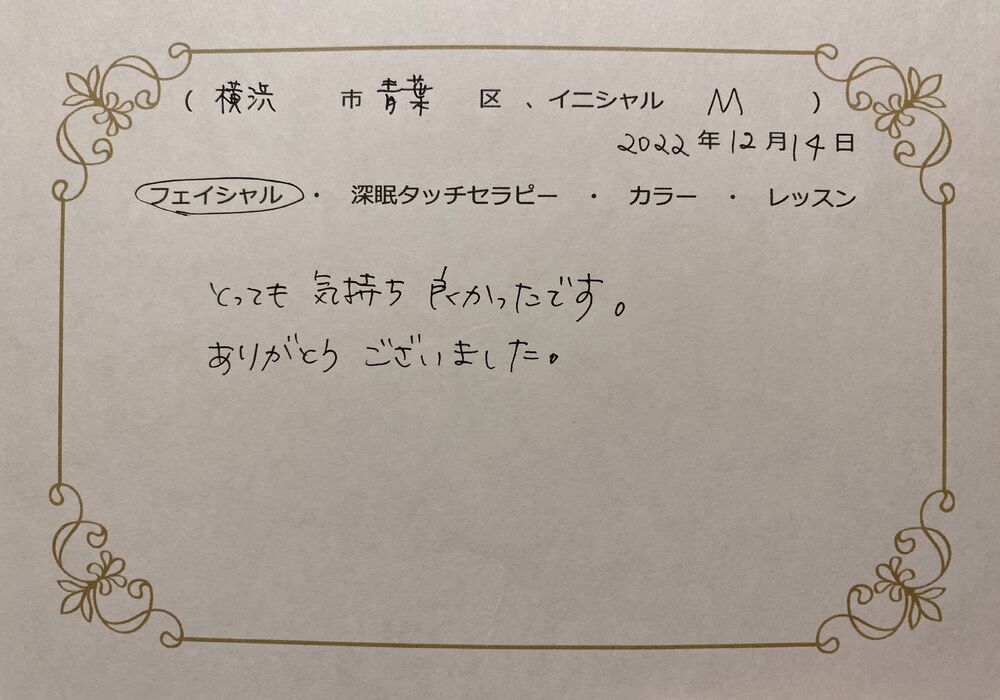 ( 横浜 市 青葉 区 、イニシャル M )
2022 年 12 月 14 日
フェイシャル ・ 深眠タッチセラピー ・ カラー ・ レッスン
とっても 気持ち 良かったです。
ありがとう ございました。